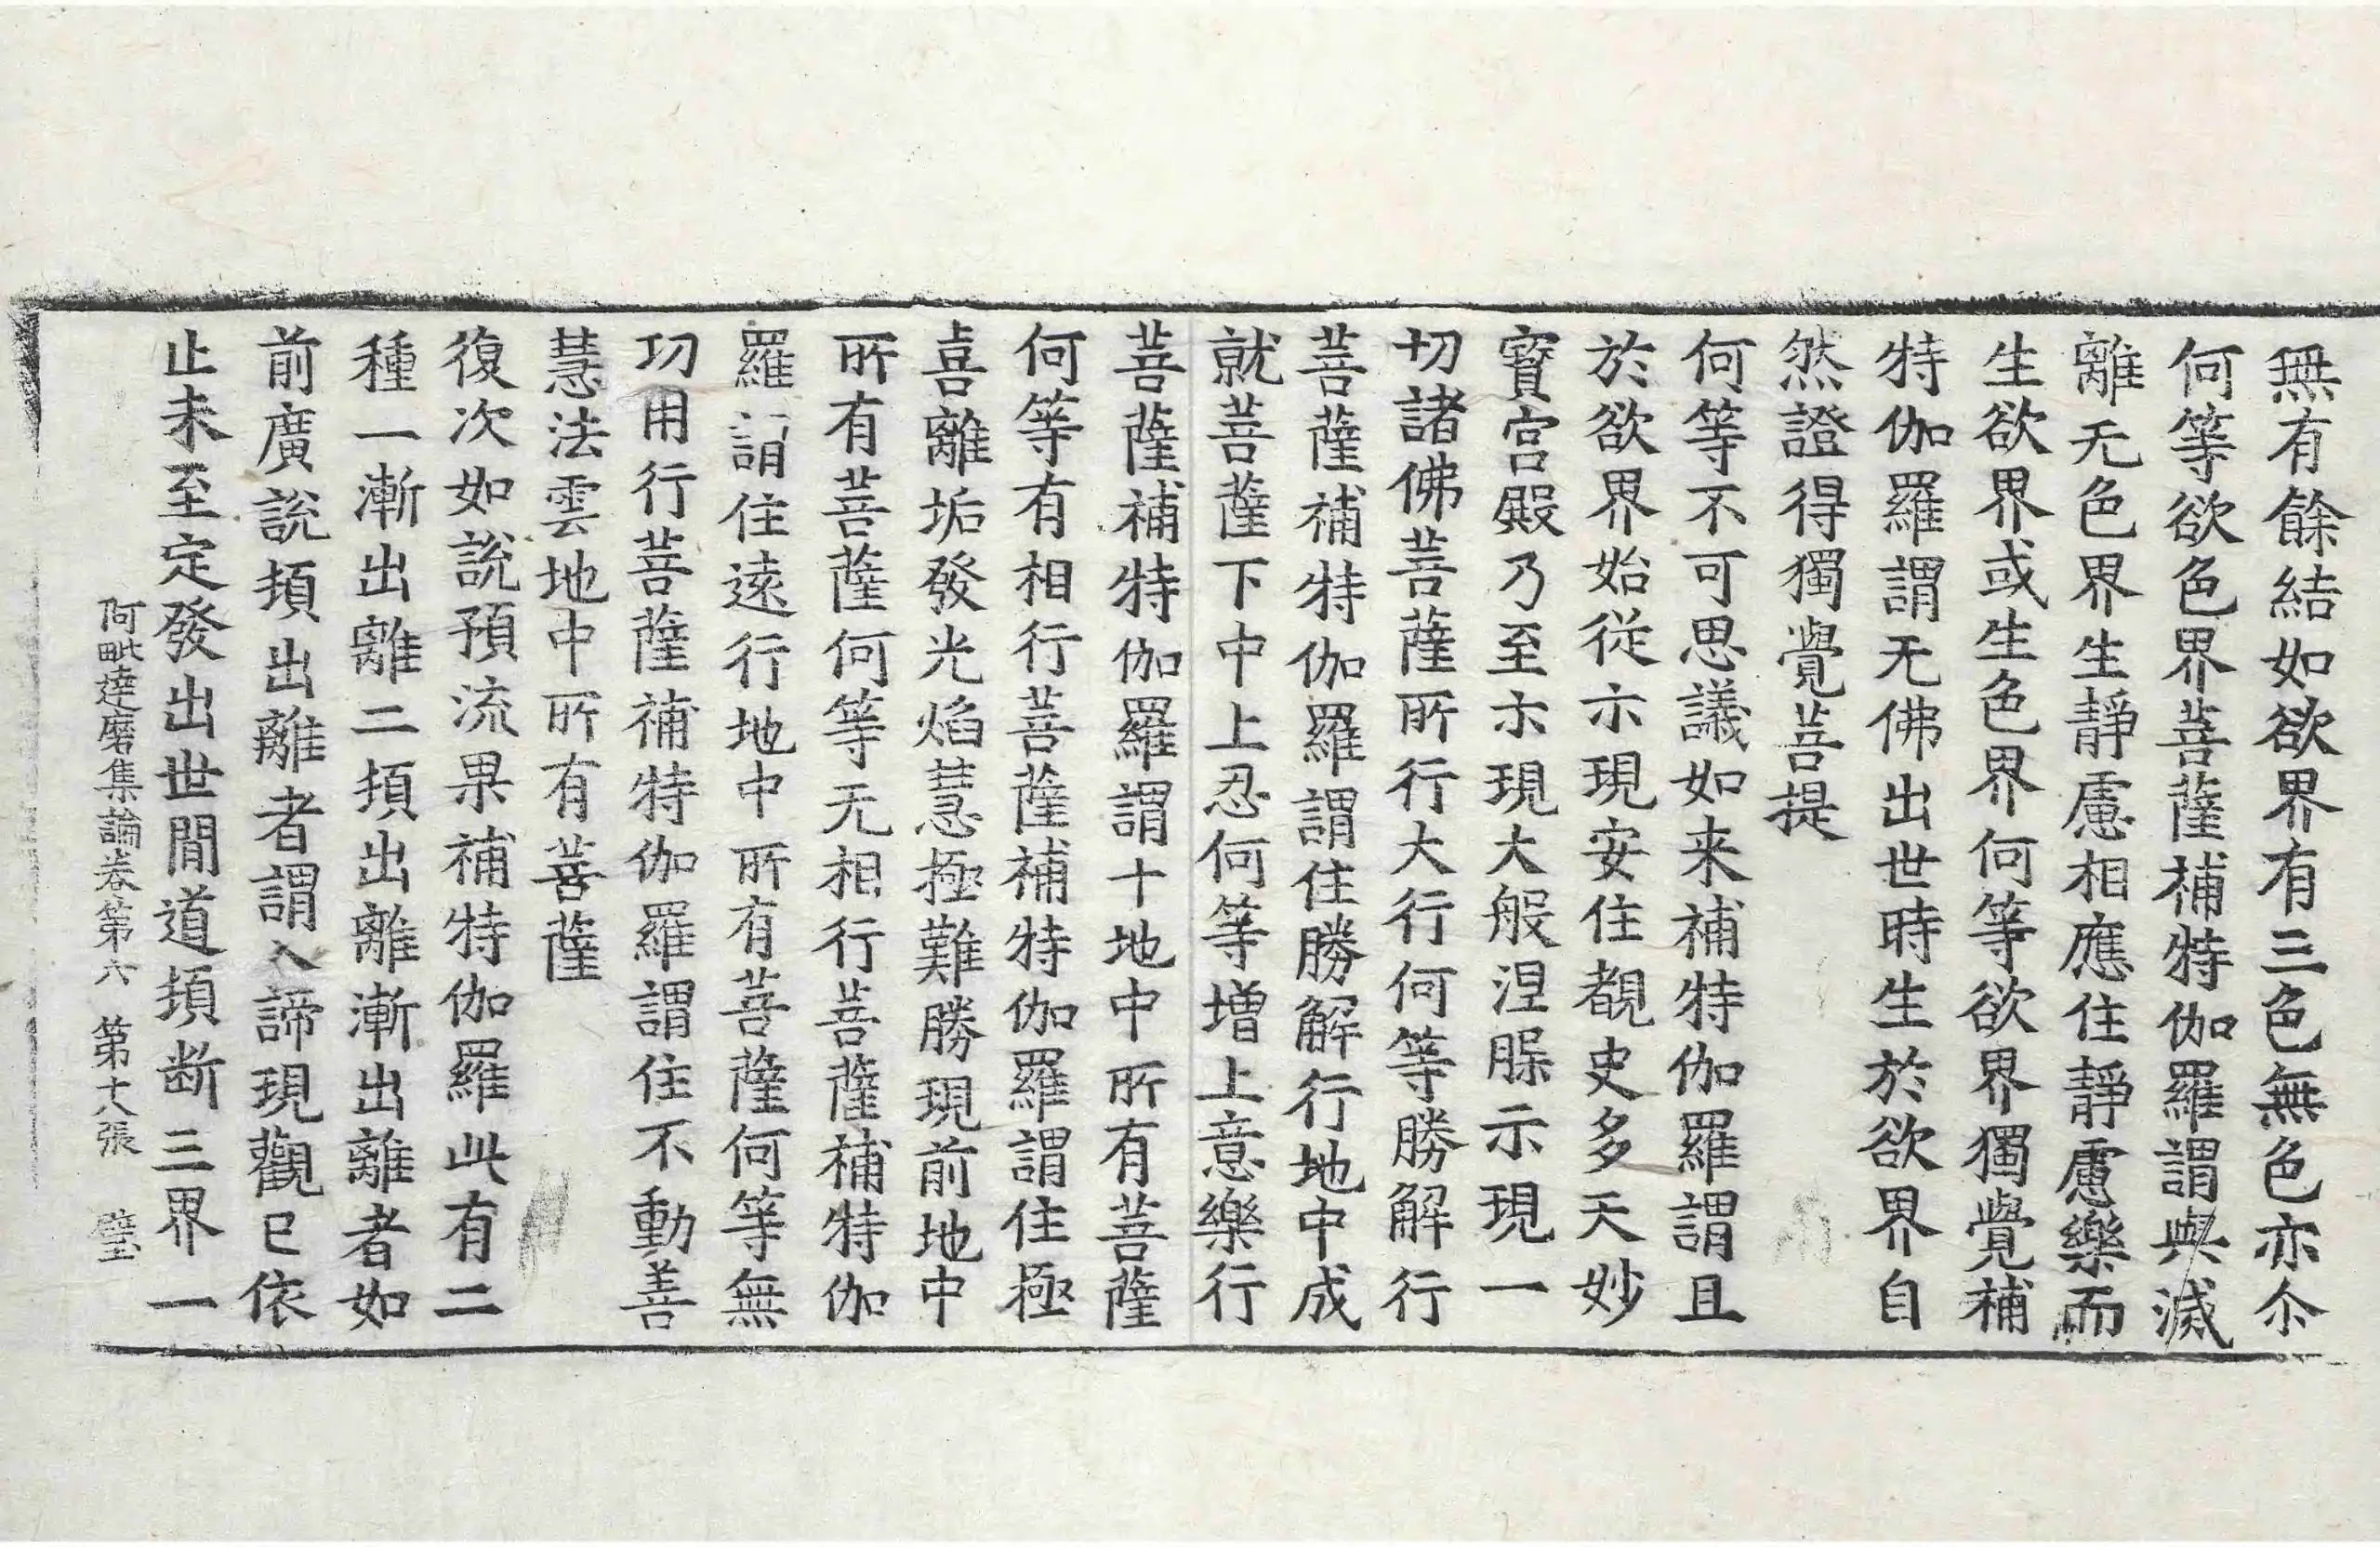 無有餘結如欲界有三色無色亦尒
何等欲色界菩薩補特伽羅謂與滅
離无色界生靜慮相應住靜慮樂而
生欲界或生色界何等欲界獨覺補
特伽羅謂无佛出世時生於欲界自
然證得獨覺菩提
何等不可思議如来補特伽羅謂且
於欲界始從示現安住覩史多天妙
寳宫殿乃至示現大般涅脲示現一
切諸佛菩薩所行大行何等勝解行
菩薩補特伽羅謂住勝解行地中成
就菩薩下中上忍何等增上意樂行
菩薩補特伽羅謂十地中所有菩薩
何等有相行菩薩補特伽羅謂住極
喜離垢發光焰慧極難勝現前地中
所有菩薩何等无相行菩薩補特伽
羅謂住遠行地中所有菩薩何等無
功用行菩薩補特伽羅謂住不動善
慧法雲地中所有菩薩
復次如說預流果補特伽羅此有二
種一漸出離二頓出離漸出離者如
前廣說頓出離者謂入諦現觀已依
止未至定發出世間道頓断三界一
阿毗達磨集論卷第六　第十八張　璧